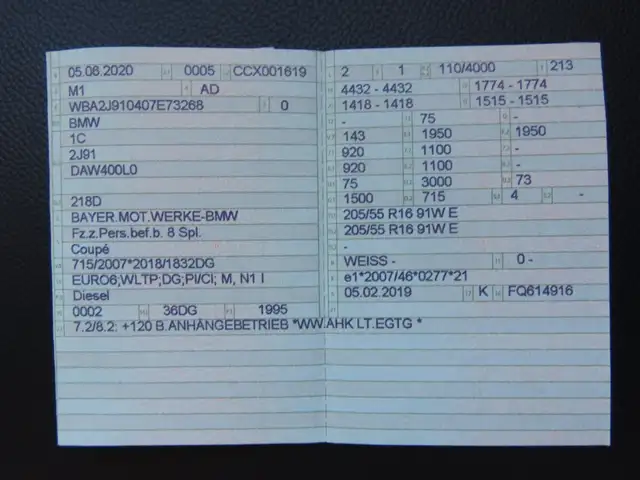 05.06.2020 0005 CCX001619
M1 AD
WBA2J910407E73268 0
BMW
1C
2J91
DAW400L0
218D
BAYER.MOT.WERKE-BMW
Fz.z.Pers.bef.b. 8 Spl.
Coupé
715/2007*2018/1832DG
EURO6;WLTP;DG;PI/CI; M, N1 I
Diesel
0002 36DG 1995
7.2/8.2: +120 B.ANHÄNGEBETRIEB *WW.AHK LT.EGTG *
2 1 110/4000 213
4432 - 4432 1774 - 1774
1418 - 1418 1515 - 1515
- 75 -
143 1950 1950
920 1100 -
920 1100 -
75 3000 73
1500 715 4 -
205/55 R16 91W E
205/55 R16 91W E
-
WEISS - 0 -
e1*2007/46*0277*21
05.02.2019 K FQ614916